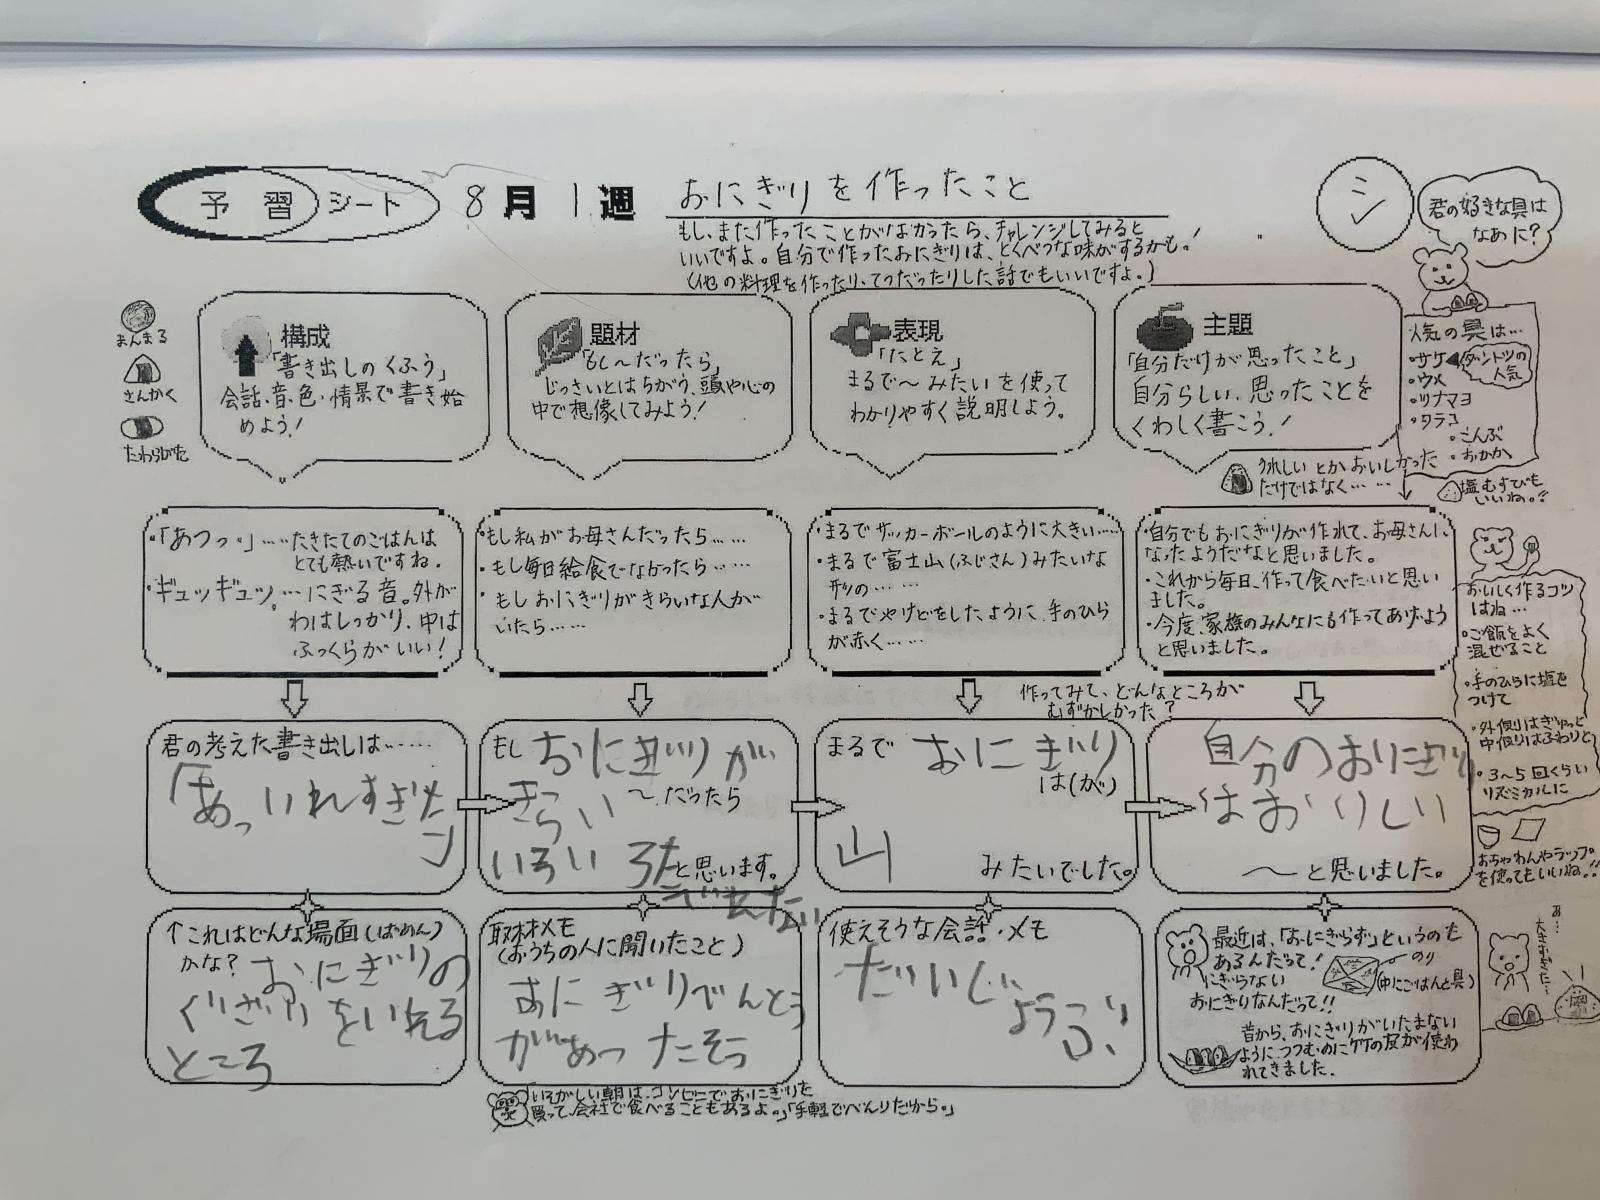 予習シート 8月1週 おにぎりを作ったこと
もし、まだ作ったことがなかったら、チャレンジしてみると
いいですよ。自分で作ったおにぎりは、とくべつな味がするかも!
(他の料理を作ったり、てつだったりした話でもいいですよ。)
シ
君の好きな具は
なあに?
まんまる
さんかく
たわらがた
構成
「書き出しのくふう」
会話・音・色・情景で書き始
めよう!
題材
「もし〜だったら」
じっさいとはちがう、頭や心の
中で想像してみよう!
表現
「たとえ」
まるで〜みたいを使って
わかりやすく説明しよう。
主題
「自分だけが思ったこと」
自分らしい、思ったことを
くわしく書こう!
人気の具は…
・サケ
ダントツの
人気
・ウメ
・ツナマヨ
・タラコ
・こんぶ
・おかか
うれしいとかおいしかった
だけではなく……
塩むすびも
いいね。?
・「あつっ・」……たきたてのごはんは
とても熱いですね。
・ギュッギュッ。…にぎる音。外が
わはしっかり、中は
ふっくらがいい!
・もし私がお母さんだったら……
・もし毎日給食でなかったら……
・もしおにぎりがきらいな人が
いたら……
・まるでサッカーボールのように大きい……
・まるで富士山(ふじさん)みたいな
形の……
・まるでやけどをしたように、手のひら
が赤く……
・自分でもおにぎりが作れて、お母さんに
なったようだなと思いました。
・これから毎日、作って食べたいと思い
ました。
・今度、家族のみんなにも作ってあげよう
と思いました。
おいしく作るコツ
はね…
・ご飯をよく
混ぜること
・手のひらに塩を
つけて
・外側はぎゅっと
中側はふわりと
・3〜5回くらい
リズミカルに
おちゃわんやラップ。
を使ってもいいね!!
作ってみて、どんなところが
むずかしかった?
君の考えた書き出しは……
「あっいれすぎた
」
もし おにぎりが
きらい 〜だったら
と思います。
まるで おにぎり
は(が)
山
みたいでした。
自分のおりにぎり
はおいしい
〜と思いました。
↑これはどんな場面(ばめん)
かな? おにぎりの
ぐざいをいれる
ところ
取材メモ
(おうちの人に聞いたこと)
おにぎりべんとう
があったそう
使えそうな会話・メモ
だいじ
ようぶ
最近は、「おにぎらず」というのも
あるんだって!
のり
にぎらない
(中にごはんと具)
おにぎりなんだって!!
昔から、おにぎりがいたまない
ようにつつむのにタケの皮が使わ
れてきました。
あ…
大きすぎた…
いそがしい朝は、コンビニでおにぎりを
買って、会社で食べることもあるよ。」「手軽でべんりだから。」